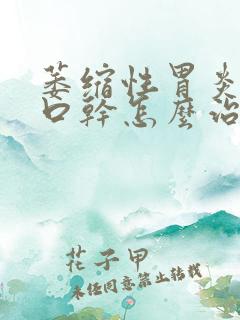 萎缩性胃炎
口幹怎麼治
花子甲
未经同意禁止转载